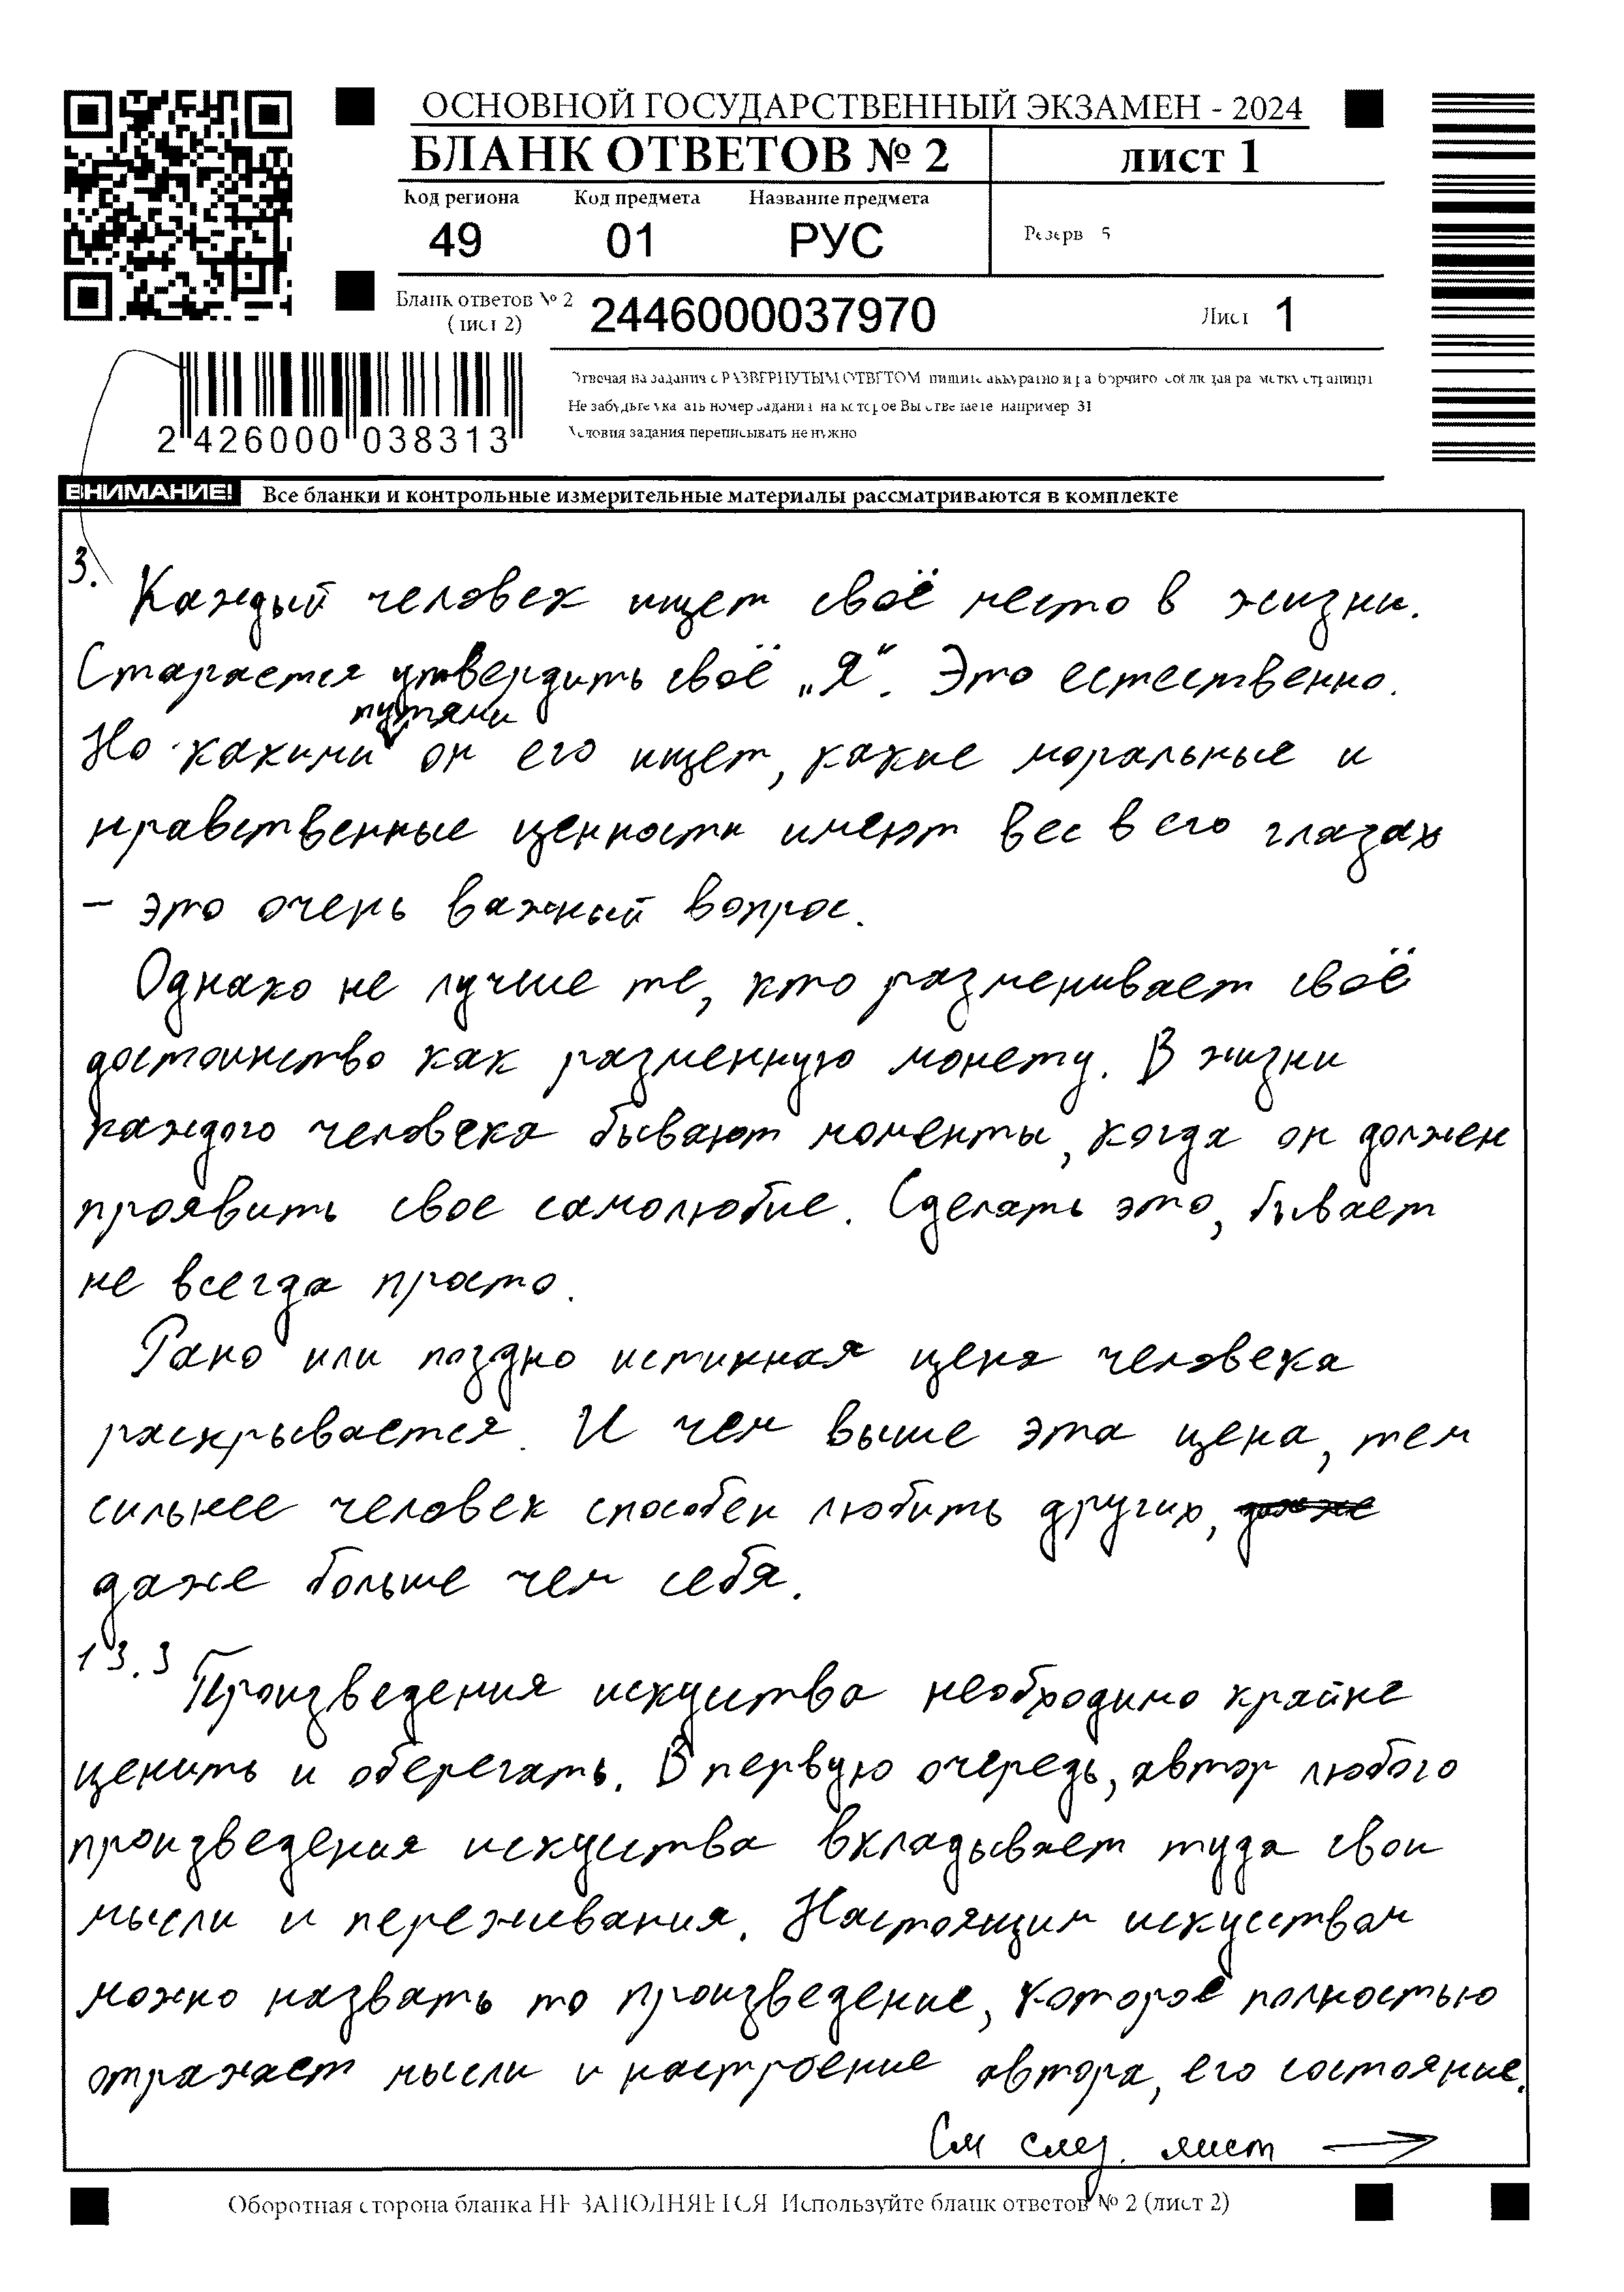 ОСНОВНОЙ ГОСУДАРСТВЕННЫЙ ЭКЗАМЕН - 2024
БЛАНК ОТВЕТОВ № 2
лист 1
Код региона Код предмета Название предмета
49 01 РУС
Резерв 5
Бланк ответов № 2
(лист 2)
2446000037970
Лист 1
2 426000 038313
Отвечая на задания с РАЗВЕРНУТЫМ ОТВЕТОМ пишите аккуратно и разборчиво соблюдая разметку страницы
Не забудьте указать номер задания на которое Вы отвечаете например 31
Условия задания переписывать не нужно
ВНИМАНИЕ! Все бланки и контрольные измерительные материалы рассматриваются в комплекте
3. Каждый человек ищет своё место в жизни.
Старается утвердить своё „Я“. Это естественно.
Но какими путями он его ищет, какие моральные и
нравственные ценности имеют вес в его глазах
– это очень важный вопрос.
Однако не лучше те, кто разменивает своё
достоинство как разменную монету. В жизни
каждого человека бывают моменты, когда он должен
проявить свое самолюбие. Сделать это, бывает
не всегда просто.
Рано или поздно истинная цена человека
раскрывается. И чем выше эта цена, тем
сильнее человек способен любить других,
даже больше чем себя.
13.3 Произведения искуства необходимо крайне
ценить и оберегать. В первую очередь, автор любого
произведения искуства вкладывает туда свои
мысли и переживания. Настоящим искуством
можно назвать то произведение, которое полностью
отражает мысли и настроение автора, его состояние.
См след. лист →
Оборотная сторона бланка НЕ ЗАПОЛНЯЕТСЯ Используйте бланк ответов № 2 (лист 2)